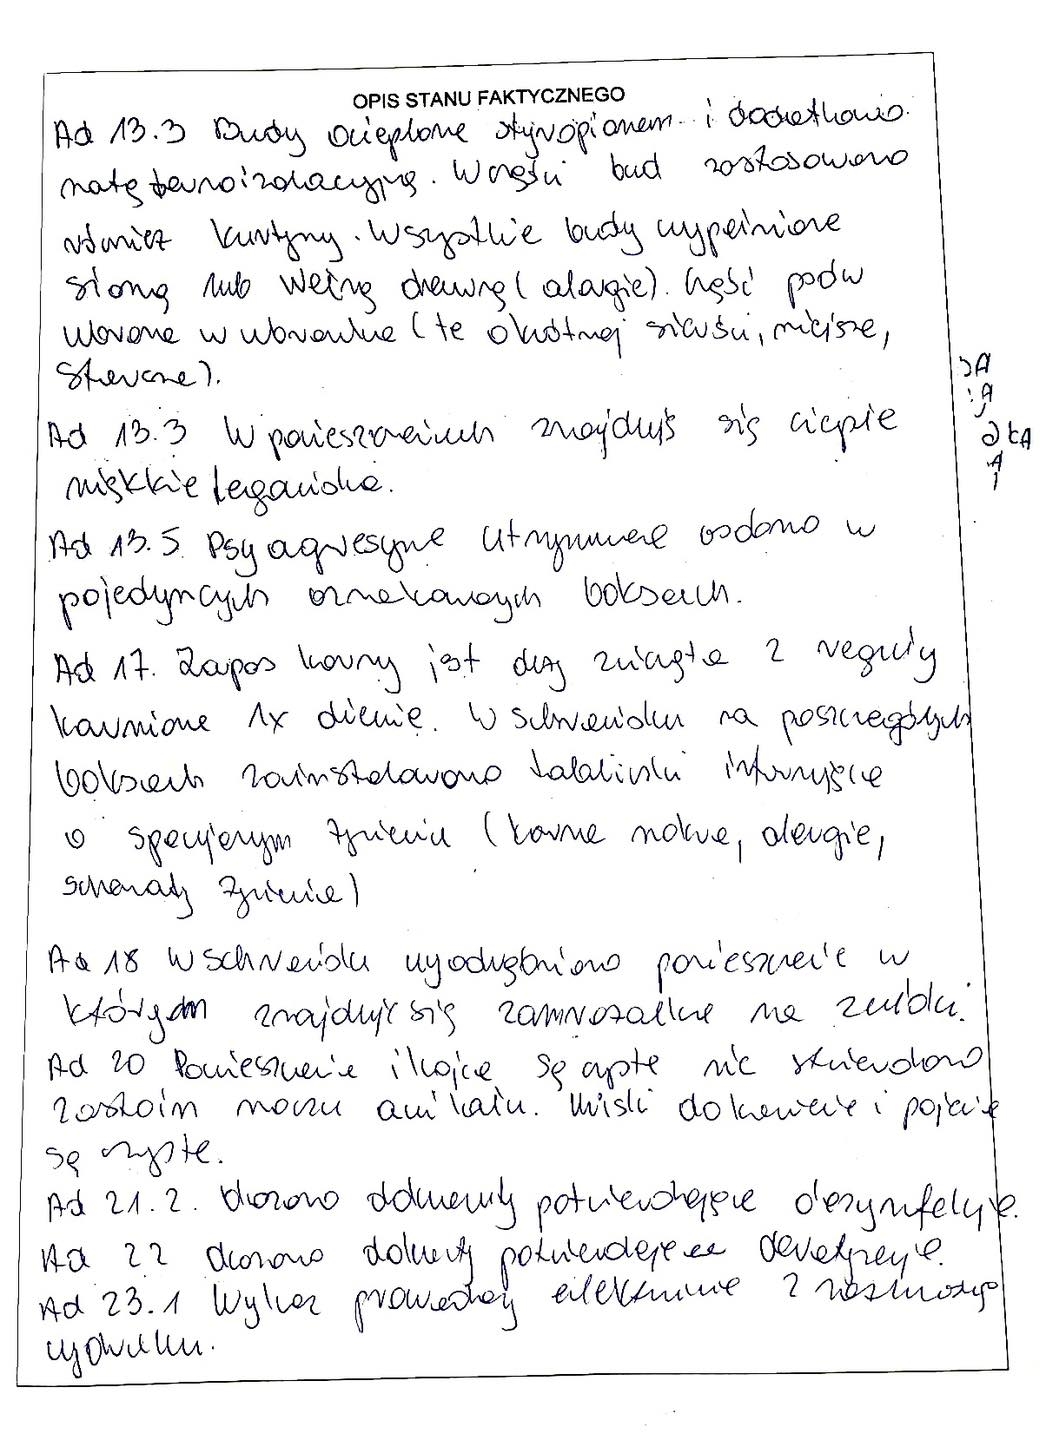 OPIS STANU FAKTYCZNEGO
Ad 13.3 Budy ocieplone styropianem i dodatkowo
matą termoizolacyjną. W części bud zastosowano
również kurtyny. Wszystkie budy wypełnione
słomą lub wełną drewną (alergie). Część psów
ubrana w ubranka (te o krótkiej sierści, mniejsze,
starsze).
Ad 13.3 W pomieszczeniach znajdują się ciepłe
miękkie legowiska.
Ad 13.5 Psy agresywne utrzymywane osobno w
pojedynczych oznakowanych boksach.
Ad 17. Zapas karmy jest duży zwierzęta z reguły
karmione 1x dziennie. W schronisku na poszczególnych
boksach zainstalowano tabliczki informujące
o specjalnym żywieniu (karma mokra, alergie,
schematy żywienia)
Ad 18 W schronisku wyodrębniono pomieszczenie w
którym znajdują się zamrażalki na zwłoki.
Ad 20 Pomieszczenie i kojce są czyste nie stwierdzono
zastoin moczu ani kału. Miski do karmienia i pojenia
są czyste.
Ad 21.2. Okazano dokumenty potwierdzające dezynfekcje.
Ad 22 Okazano dokumenty potwierdzające deratyzację.
Ad 23.1 Wykaz prowadzony elektronicznie z
wydruku.